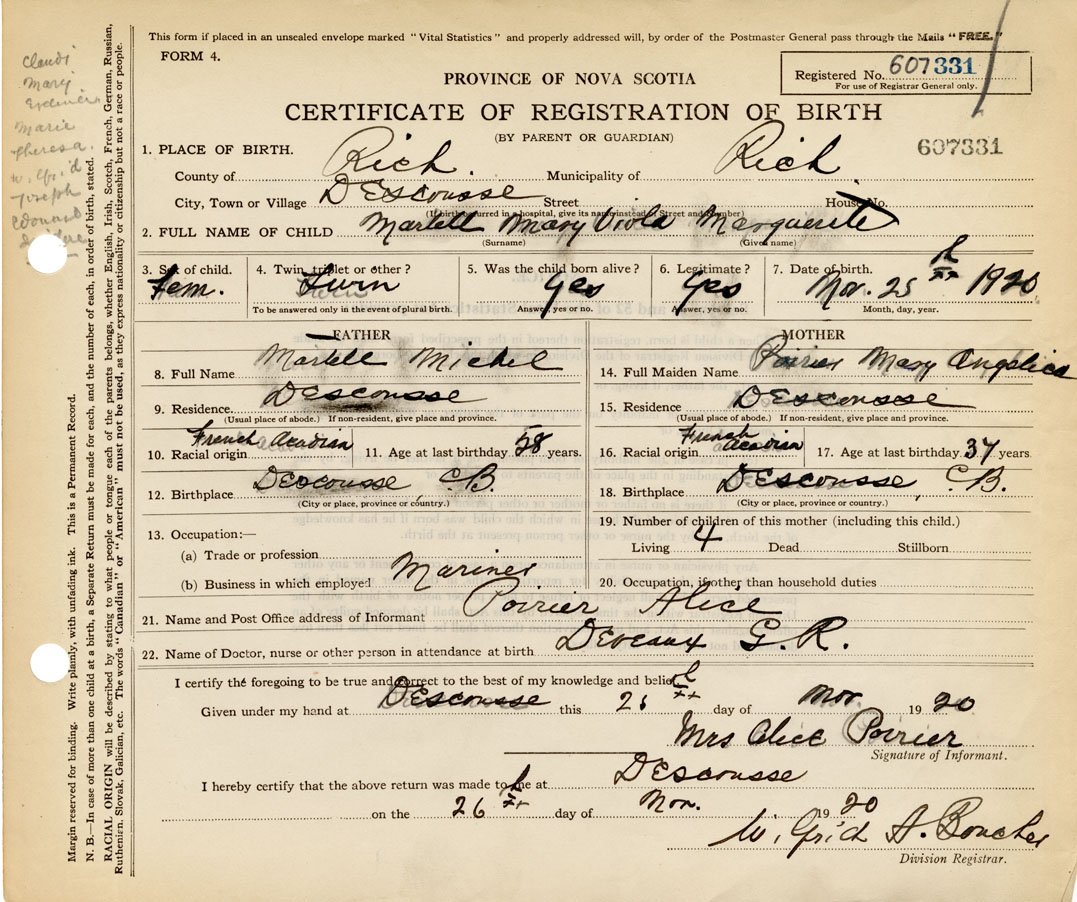 This form if placed in an unsealed envelope marked "Vital Statistics" and properly addressed will, by order of the Postmaster General pass through the Mails "FREE."
FORM 4.
Registered No. 607331
For use of Registrar General only.
PROVINCE OF NOVA SCOTIA
CERTIFICATE OF REGISTRATION OF BIRTH
(BY PARENT OR GUARDIAN)
607331
1. PLACE OF BIRTH.
County of Rich Municipality of Rich
City, Town or Village DEscousse Street House No.
(If birth occurred in a hospital, give its name instead of Street and Number)
2. FULL NAME OF CHILD Martell Mary Viola Marguerite
(Surname) (Given name)
3. Sex of child. Fem.
4. Twin, triplet or other? Twin
To be answered only in the event of plural birth.
5. Was the child born alive? Yes
Answer, yes or no.
6. Legitimate? Yes
Answer, yes or no.
7. Date of birth. Nov. 25th 1920
Month, day, year.
FATHER
8. Full Name Martell Michel
9. Residence. DEscousse
(Usual place of abode.) If non-resident, give place and province.
10. Racial origin French Acadian
11. Age at last birthday 58 years.
12. Birthplace Descousse C.B.
(City or place, province or country.)
13. Occupation:—
(a) Trade or profession
(b) Business in which employed Mariner
MOTHER
14. Full Maiden Name Poirier Mary Angelica
15. Residence DEscousse
(Usual place of abode.) If non-resident, give place and province.
16. Racial origin French Acadian
17. Age at last birthday 37 years.
18. Birthplace DEscousse, C.B.
(City or place, province or country.)
19. Number of children of this mother (including this child.)
Living 4 Dead Stillborn
20. Occupation, if other than household duties
21. Name and Post Office address of Informant Poirier Alice
22. Name of Doctor, nurse or other person in attendance at birth Deveaux G. R.
I certify the foregoing to be true and correct to the best of my knowledge and belief.
Given under my hand at DEscousse this day of Nov. 1920
Mrs Alice Poirier
Signature of Informant.
I hereby certify that the above return was made to me at DEscousse
on the 26th day of Nov. 1920
A. Boucher
Division Registrar.
Margin reserved for binding. Write plainly, with unfading ink. This is a Permanent Record.
N. B.—In case of more than one child at a birth, a Separate Return must be made for each, and the number of each, in order of birth, stated.
RACIAL ORIGIN will be described by stating to what people or tongue each of the parents belongs, whether English, Irish, Scotch, French, German, Russian,
Ruthenien, Slovak, Galician, etc. The words "Canadian" or "American" must not be used, as they express nationality or citizenship but not a race or people.
Mary
Marie
Theresa
Joseph